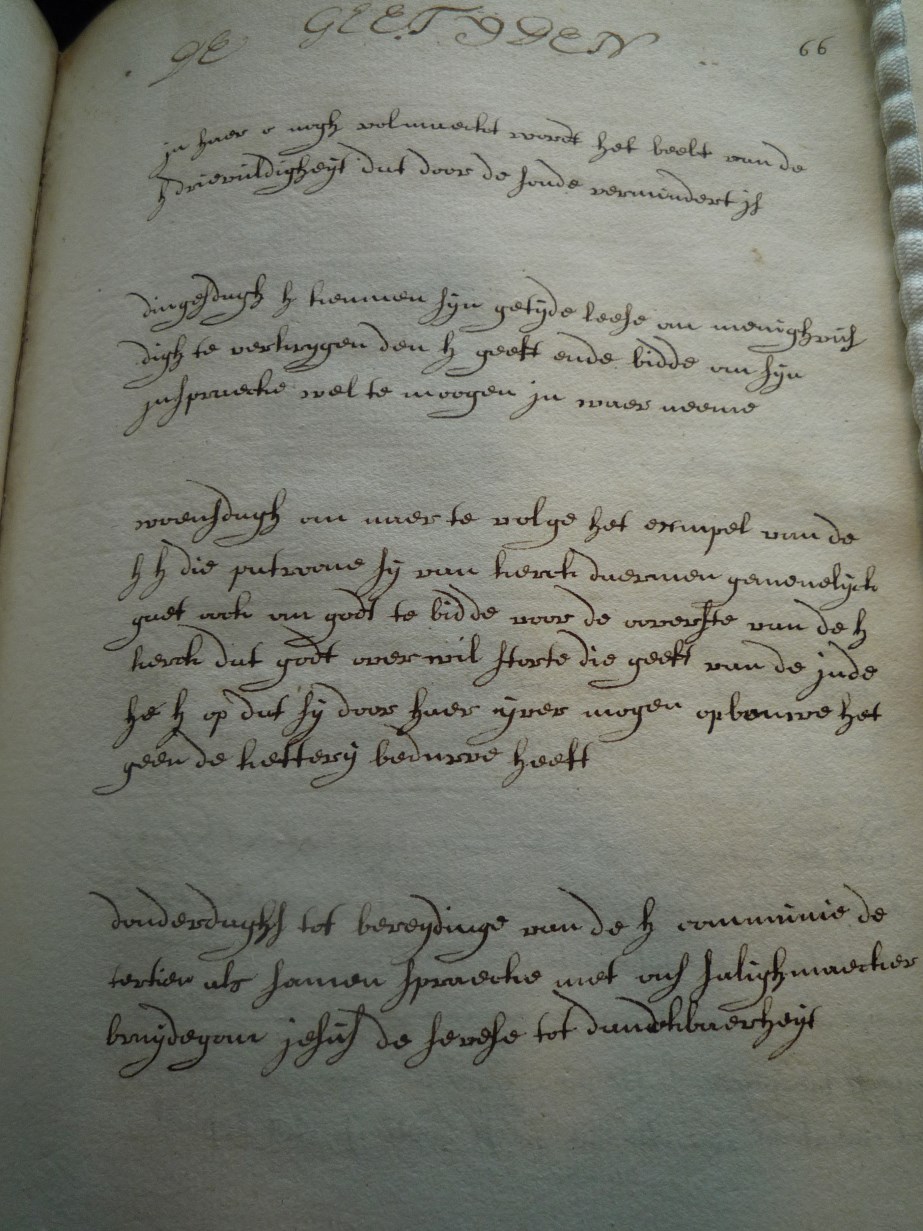 DE GEETYDEN 66
in haer o nogh volmaeckt wordt het beelt van de
h drievuldigheyt dat door de sonde vermindert is
dingesdagh h kennen syn getyde leese om menighvul
digh te verkrygen den h geest ende bidde om syn
inspraecke wel te moogen in waer neeme
woensdagh om naer te volge het exempel van de
h h die patroone sy van kerck daermen gemeenelyck
gaet oock om godt te bidde voor de overste van de h
kerck dat godt over wil storte die geest van de inde
he h op dat sy door haer yver mogen opbouwe het
geen de kettery bedurve heeft
donderdaghs tot bereydinge van de h communie de
tertien als samen spraecke met ons salighmaecker
bruydegom jesus de sexese tot danckbaerheyt